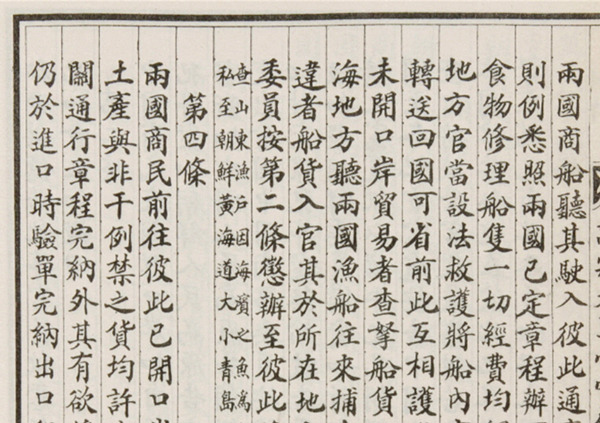 兩國商船聽其駛入彼此通
則例悉照兩國已定章程辦
食物修理船隻一切經費均
地方官當設法救護將船內
轉送回國可省前此互相護
未開口岸貿易者查拏船貨
海地方聽兩國漁船往來捕
違者船貨入官其於所在地
委員按第二條懲辦至彼此
查山東漁戶因海濱之魚為
私至朝鮮黃海道大小青島
第四條
兩國商民前往彼此已開口
土產與非干例禁之貨均許
關通行章程完納外其有欲
仍於進口時驗單完納出口